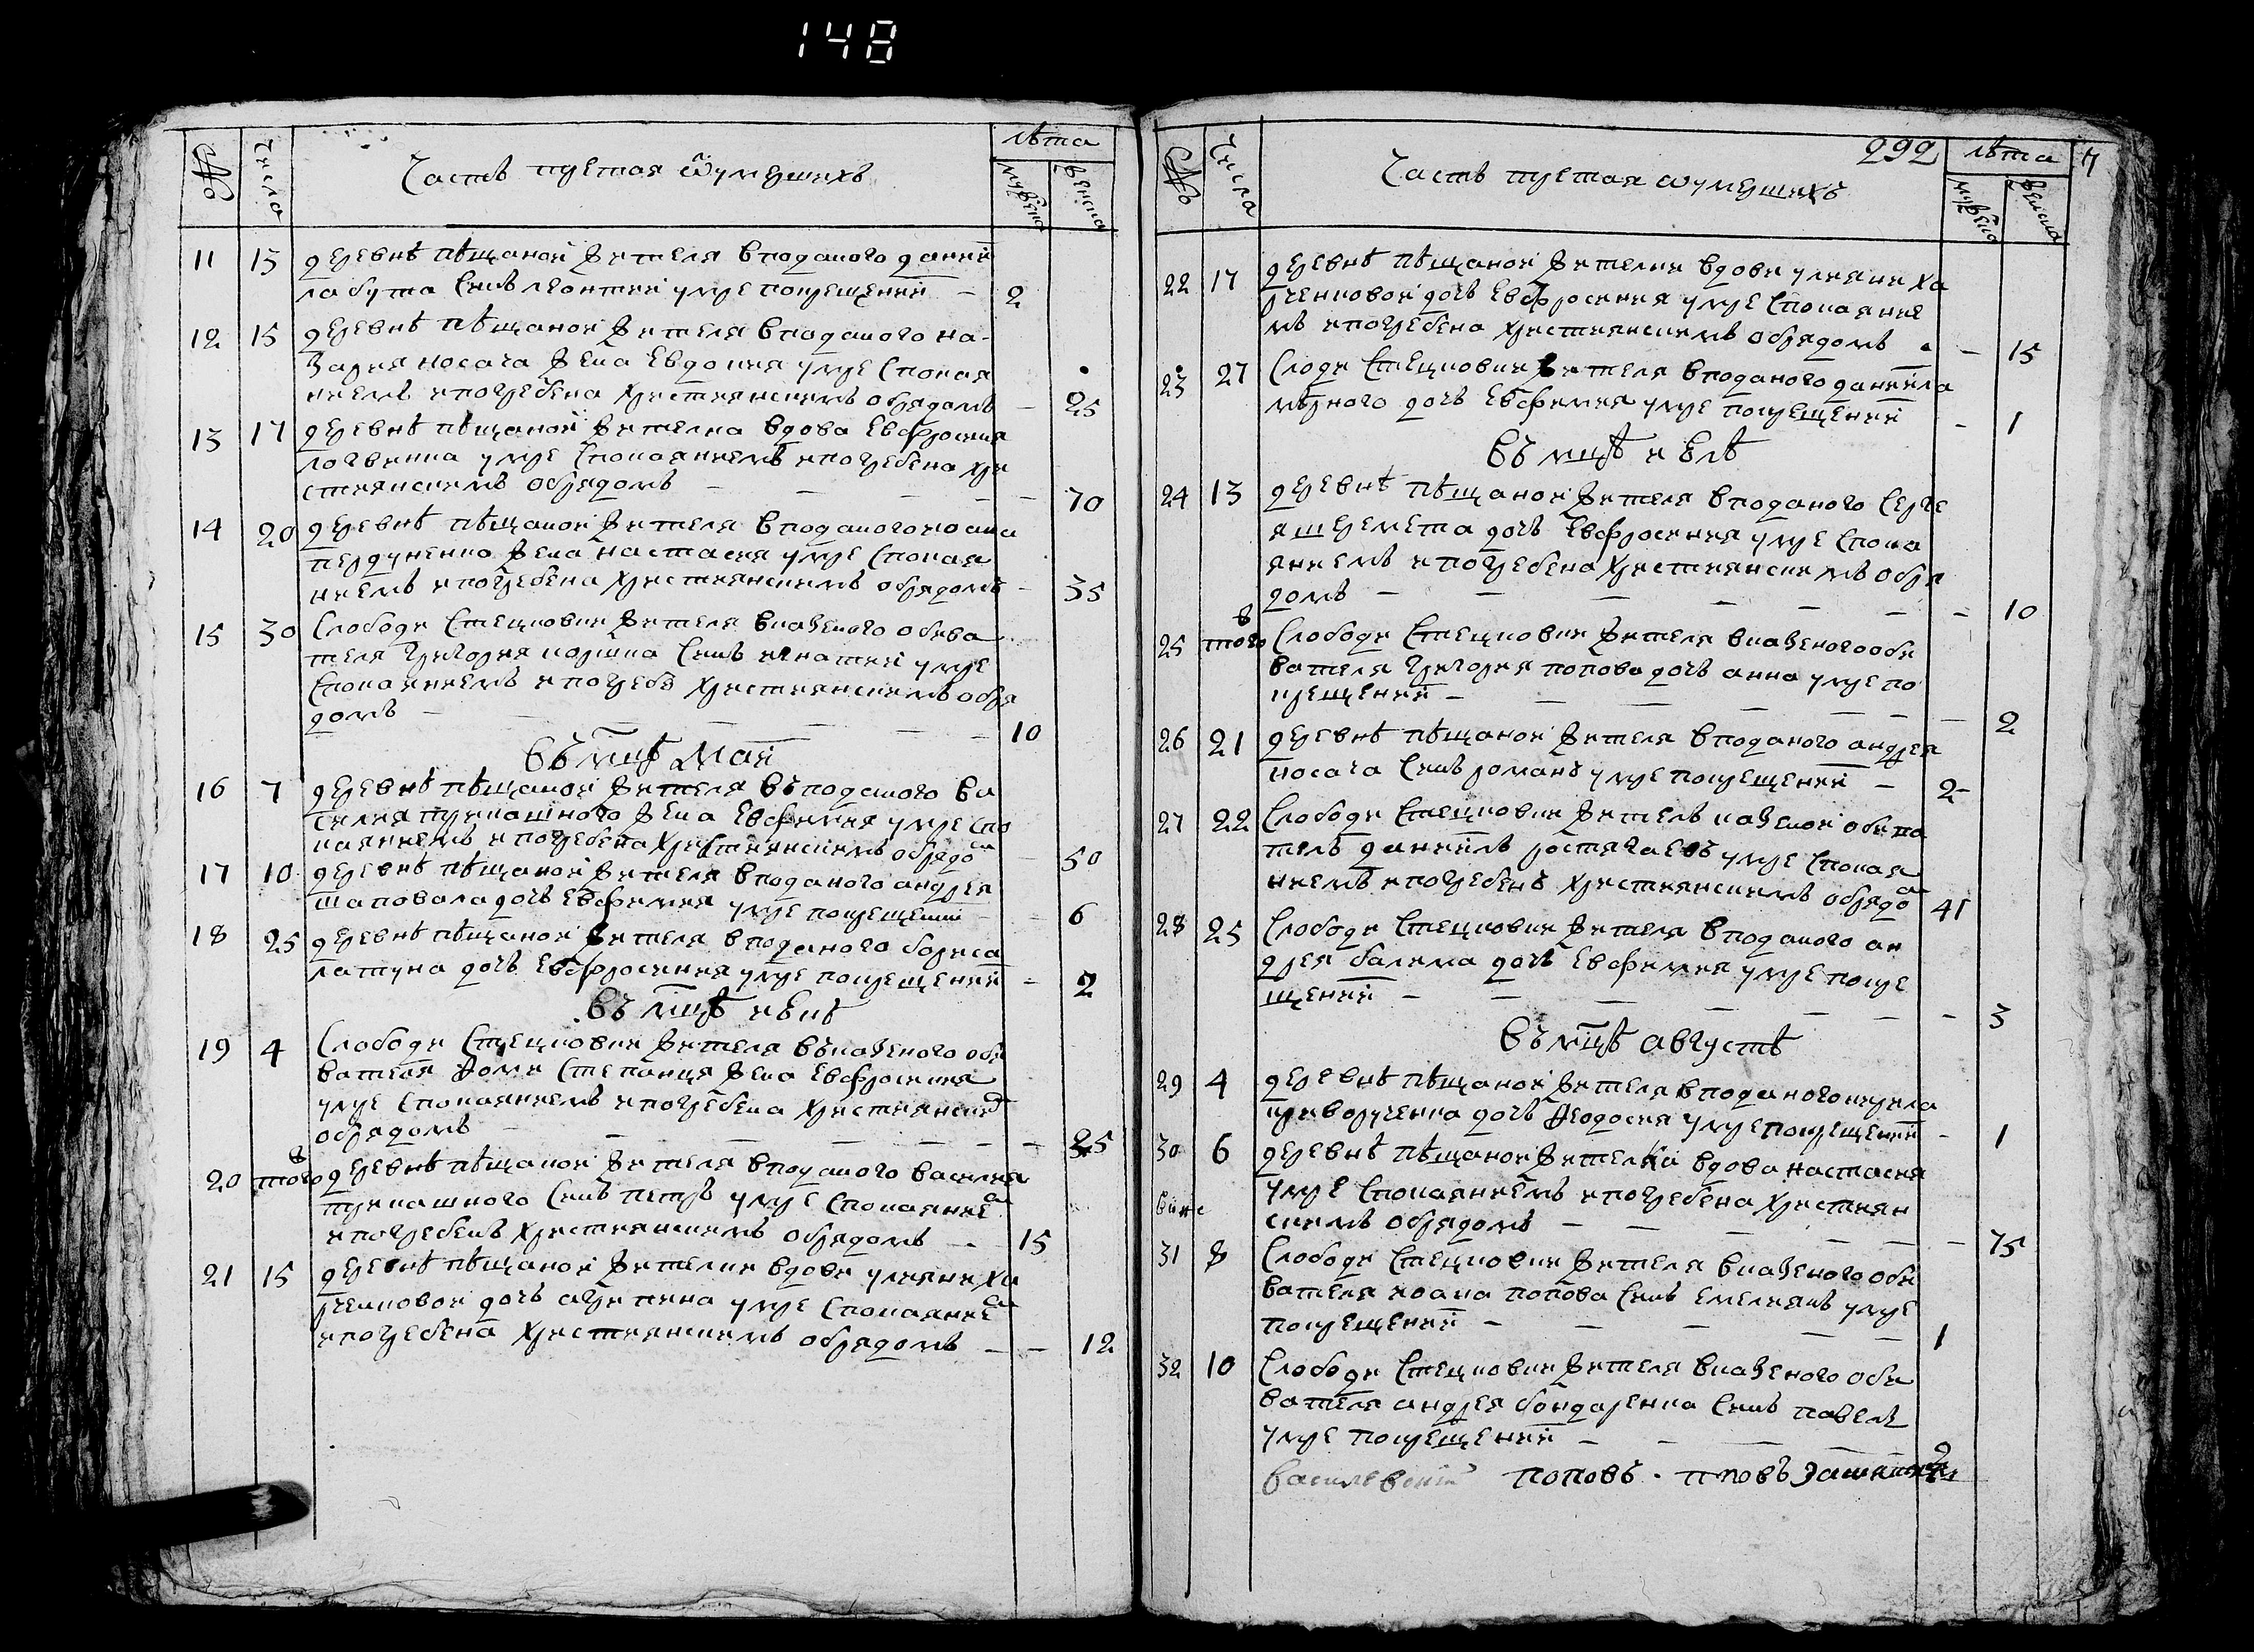 148
№ Число Часть третая ѿ умершихъ лѣта мужеска женска
11 13 деревнѣ пѣщаной жителя вподаного даниі
ла бута синъ леонтий умре покрещениі — 2
12 15 деревнѣ пѣщаной жителя вподаного на-
зария носача жена Евдокия умре Спокая
ниемъ ипогребена християнскимъ обрядомъ — 25
13 17 деревнѣ пѣщаной жителка вдова Евфросиния
умре Спокаяниемъ ипогребена хри
стиянскимъ обрядомъ — — — — 70
14 20 деревнѣ пѣщаной жителя вподаного иоана
жена настасия умре Спокая
ниемъ ипогребена християнскимъ обрядомъ — 35
15 30 Слободи Стецковки жителя вказеного обива
теля григория коршка Синъ игнатий умре
Спокаяниемъ ипогребе християнскимъ обря
домъ — — — — — 10
въ мцѣ маиі
16 7 деревнѣ пѣщаной жителя въподаного ва
силия прикашного жена Евфимия умре спо
каяниемъ ипогребена християнскимъ обрядо — 50
17 10 деревнѣ пѣщаной жителя вподаного андрея
шаповала дочъ Евфимия умре покрещениі — 6
18 25 деревнѣ пѣщаной жителя вподаного бориса
латуна дочъ Евфросиния умре покрещениі — 2
въ мцѣ июнѣ
19 4 Слободи Стецковки жителя въказеного оби
вателя Фоми Степанца жена Евфросиния
умре Спокаяниемъ ипогребена християнски
обрядомъ — — — — — — 25
20 того деревнѣ пѣщаной жителя вподаного василия
прикашного Синъ петръ умре Спокаяние
ипогребенъ християнскимъ обрядомъ — 15
21 15 деревнѣ пѣщаной жителки вдови улияни ха
рченковой дочъ агрипина умре Спокаяние
ипогребена християнскимъ обрядомъ — — 12
292 7
№ Числа Часть третая ѿ умершихъ лѣта мужеска женска
22 17 деревнѣ пѣщаной жителки вдови улияни ха
рченковой дочъ Евфросиния умре Спокаяние
мъ ипогребена християнскимъ обрядомъ — 15
23 27 Слоди Стецковки жителя вподаного даниила
мѣрного дочъ Евфимия умре покрещениі — 1
въ мцѣ июлѣ
24 13 деревнѣ пѣщаной жителя вподаного Серге
я шеремета дочъ Евфросиния умре Спока
яниемъ ипогребена християнскимъ обря
домъ — — — — — — — 10
25 того Слободи Стецковки жителя вказеного оби
вателя григория попова дочъ анна умре по
крещениі — — — — — — 2
26 21 деревнѣ пѣщаной жителя вподаного андрея
носача Синъ романъ умре покрещениі — 2
27 22 Слободи Стецковки житель казеной обива
тель данииілъ умре Спокая
ниемъ ипогребенъ християнскимъ обрядо 41
28 25 Слободи Стецковки жителя вподаного ан
дрея балима дочъ Евфимия умре покре
щениі — — — — — — 3
въ мцѣ августѣ
29 4 деревнѣ пѣщаной жителя вподаного кирила
криворученка дочъ Феодосия умре покрещениі — 1
30 6 деревнѣ пѣщаной жителка вдова настасия
умре Спокаяниемъ ипогребена християн
скимъ обрядомъ — — — — 75
31 8 Слободи Стецковки жителя вказеного оби
вателя иоана попова Синъ Емелиянъ умре
покрещениі — — — — — 1
32 10 Слободи Стецковки жителя вказеного оби
вателя андрея бондаренка Синъ павелъ
умре покрещениі — — — — 2
василевский поповъ